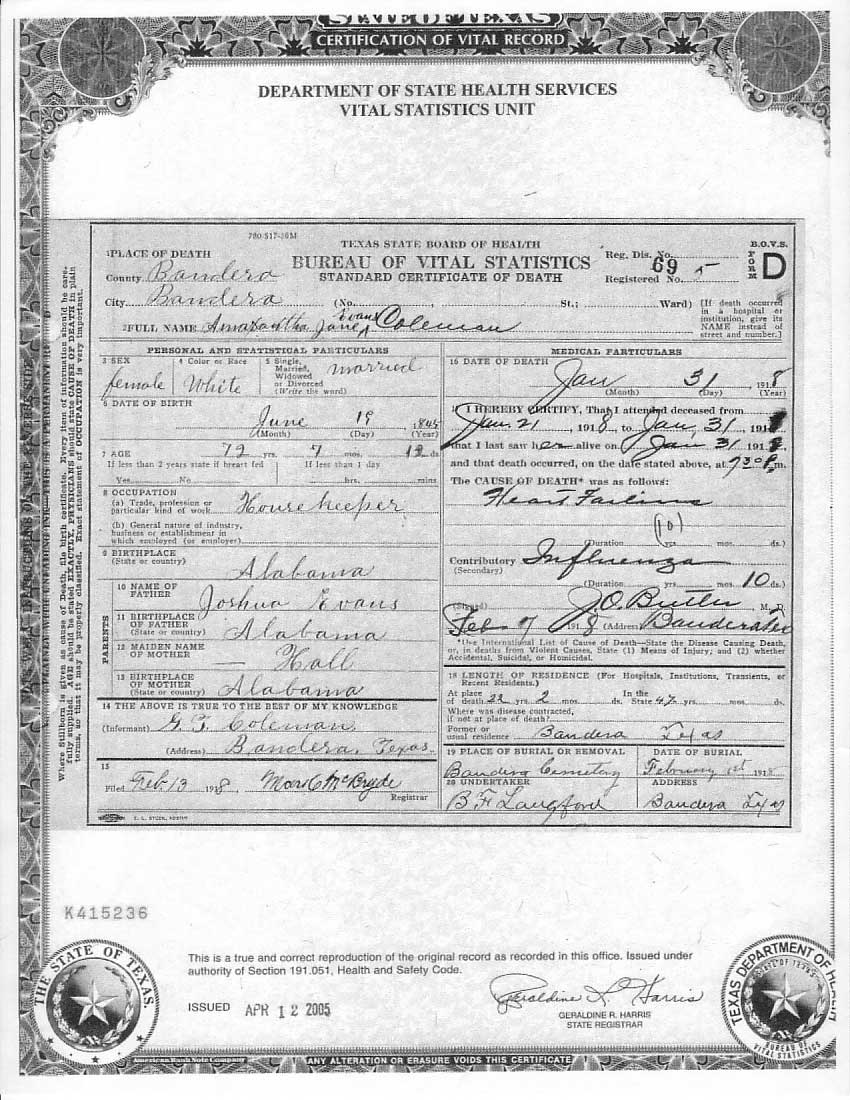 STATE OF TEXAS
CERTIFICATION OF VITAL RECORD
DEPARTMENT OF STATE HEALTH SERVICES
VITAL STATISTICS UNIT
780-517-36M
TEXAS STATE BOARD OF HEALTH
BUREAU OF VITAL STATISTICS
STANDARD CERTIFICATE OF DEATH
Reg. Dis. No. 69
Registered No. 5
B.O.V.S.
FORM D
1 PLACE OF DEATH
County Bandera
City Bandera (No. St.; Ward)
[If death occurred in a hospital or institution, give its NAME instead of street and number.]
2 FULL NAME Jane Evans Coleman
PERSONAL AND STATISTICAL PARTICULARS
3 SEX female
4 Color or Race White
5 Single, Married, Widowed or Divorced (Write the word) married
6 DATE OF BIRTH
June 19
(Month) (Day) (Year)
7 AGE 72 yrs. 7 mos. 12 ds.
If less than 2 years state if breast fed
Yes No
If less than 1 day
hrs. mins
8 OCCUPATION
(a) Trade, profession or particular kind of work Housekeeper
(b) General nature of industry, business or establishment in which employed (or employer)
9 BIRTHPLACE
(State or country) Alabama
PARENTS
10 NAME OF FATHER Joshua Evans
11 BIRTHPLACE OF FATHER (State or country) Alabama
12 MAIDEN NAME OF MOTHER — Hall
13 BIRTHPLACE OF MOTHER (State or country) Alabama
14 THE ABOVE IS TRUE TO THE BEST OF MY KNOWLEDGE
(Informant) G. T. Coleman
(Address) Bandera, Texas.
15
Filed Feb-13 1918, McBryde
Registrar
MEDICAL PARTICULARS
16 DATE OF DEATH
Jan 31 1918
(Month) (Day) (Year)
I HEREBY CERTIFY, That I attended deceased from
Jan. 21 1918, to Jan, 31 191
that I last saw her alive on Jan 31 191
and that death occurred, on the date stated above, at 730 P m.
The CAUSE OF DEATH* was as follows:
Heart Failure
(10)
(Duration yrs. mos. ds.)
Contributory Influenza
(Secondary)
(Duration yrs. mos. 10 ds.)
(Signed) J.O. Butler M. D.
Feb 7 1918 (Address) Bandera Tex
*Use International List of Cause of Death—State the Disease Causing Death, or, in deaths from Violent Causes, State (1) Means of Injury; and (2) whether Accidental, Suicidal, or Homicidal.
18 LENGTH OF RESIDENCE (For Hospitals, Institutions, Transients, or Recent Residents.)
At place of death 22 yrs. 2 mos. ds. In the State 47 yrs. mos. ds.
Where was disease contracted, if not at place of death?
Former or usual residence Bandera Texas
19 PLACE OF BURIAL OR REMOVAL
Bandera Cemetery
DATE OF BURIAL
February 1st 1918
20 UNDERTAKER
B F Langford
ADDRESS
Bandera Texas
Where Stillborn is given as cause of Death, file birth certificate. Every item of information should be carefully supplied. AGE should be stated EXACTLY. PHYSICIANS should state CAUSE OF DEATH in plain terms, so that it may be properly classified. Exact statement of OCCUPATION is very important.
K415236
THE STATE OF TEXAS
This is a true and correct reproduction of the original record as recorded in this office. Issued under
authority of Section 191.051, Health and Safety Code.
ISSUED APR 12 2005
Geraldine R. Harris
GERALDINE R. HARRIS
STATE REGISTRAR
TEXAS DEPARTMENT OF HEALTH
BUREAU OF VITAL STATISTICS
STATE OF TEXAS
American Bank Note Company
ANY ALTERATION OR ERASURE VOIDS THIS CERTIFICATE